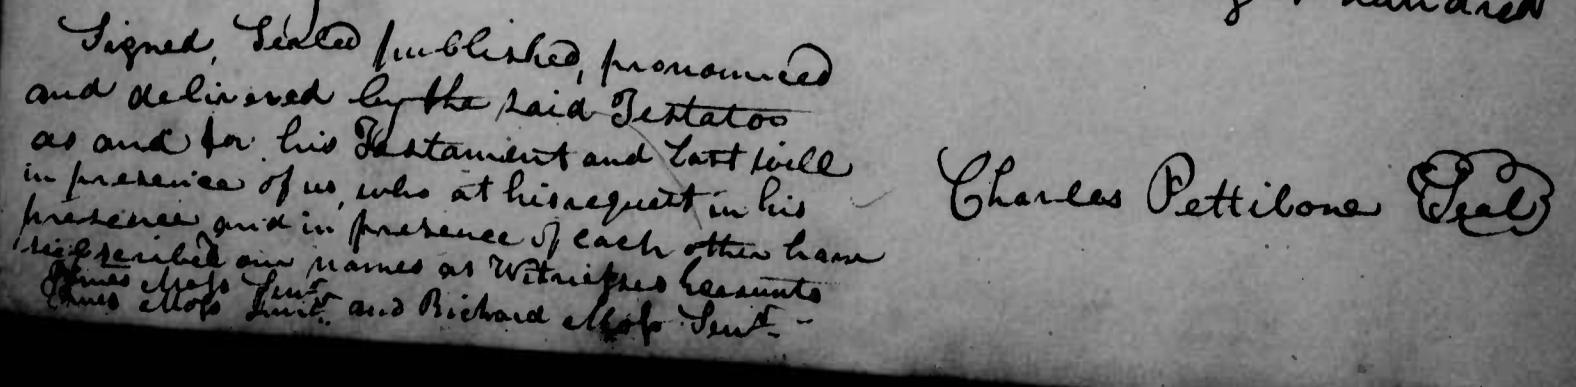 hundred
Signed, Sealed published, pronounced
and delivered by the said Testator
as and for his Testament and Last will
in presence of us, who at his request in his
presence and in presence of each other have
subscribed our names as Witnesses hereunto
Moss Senr
Moss Junr. and Richard Moss Senr.
Charles Pettibone Seal